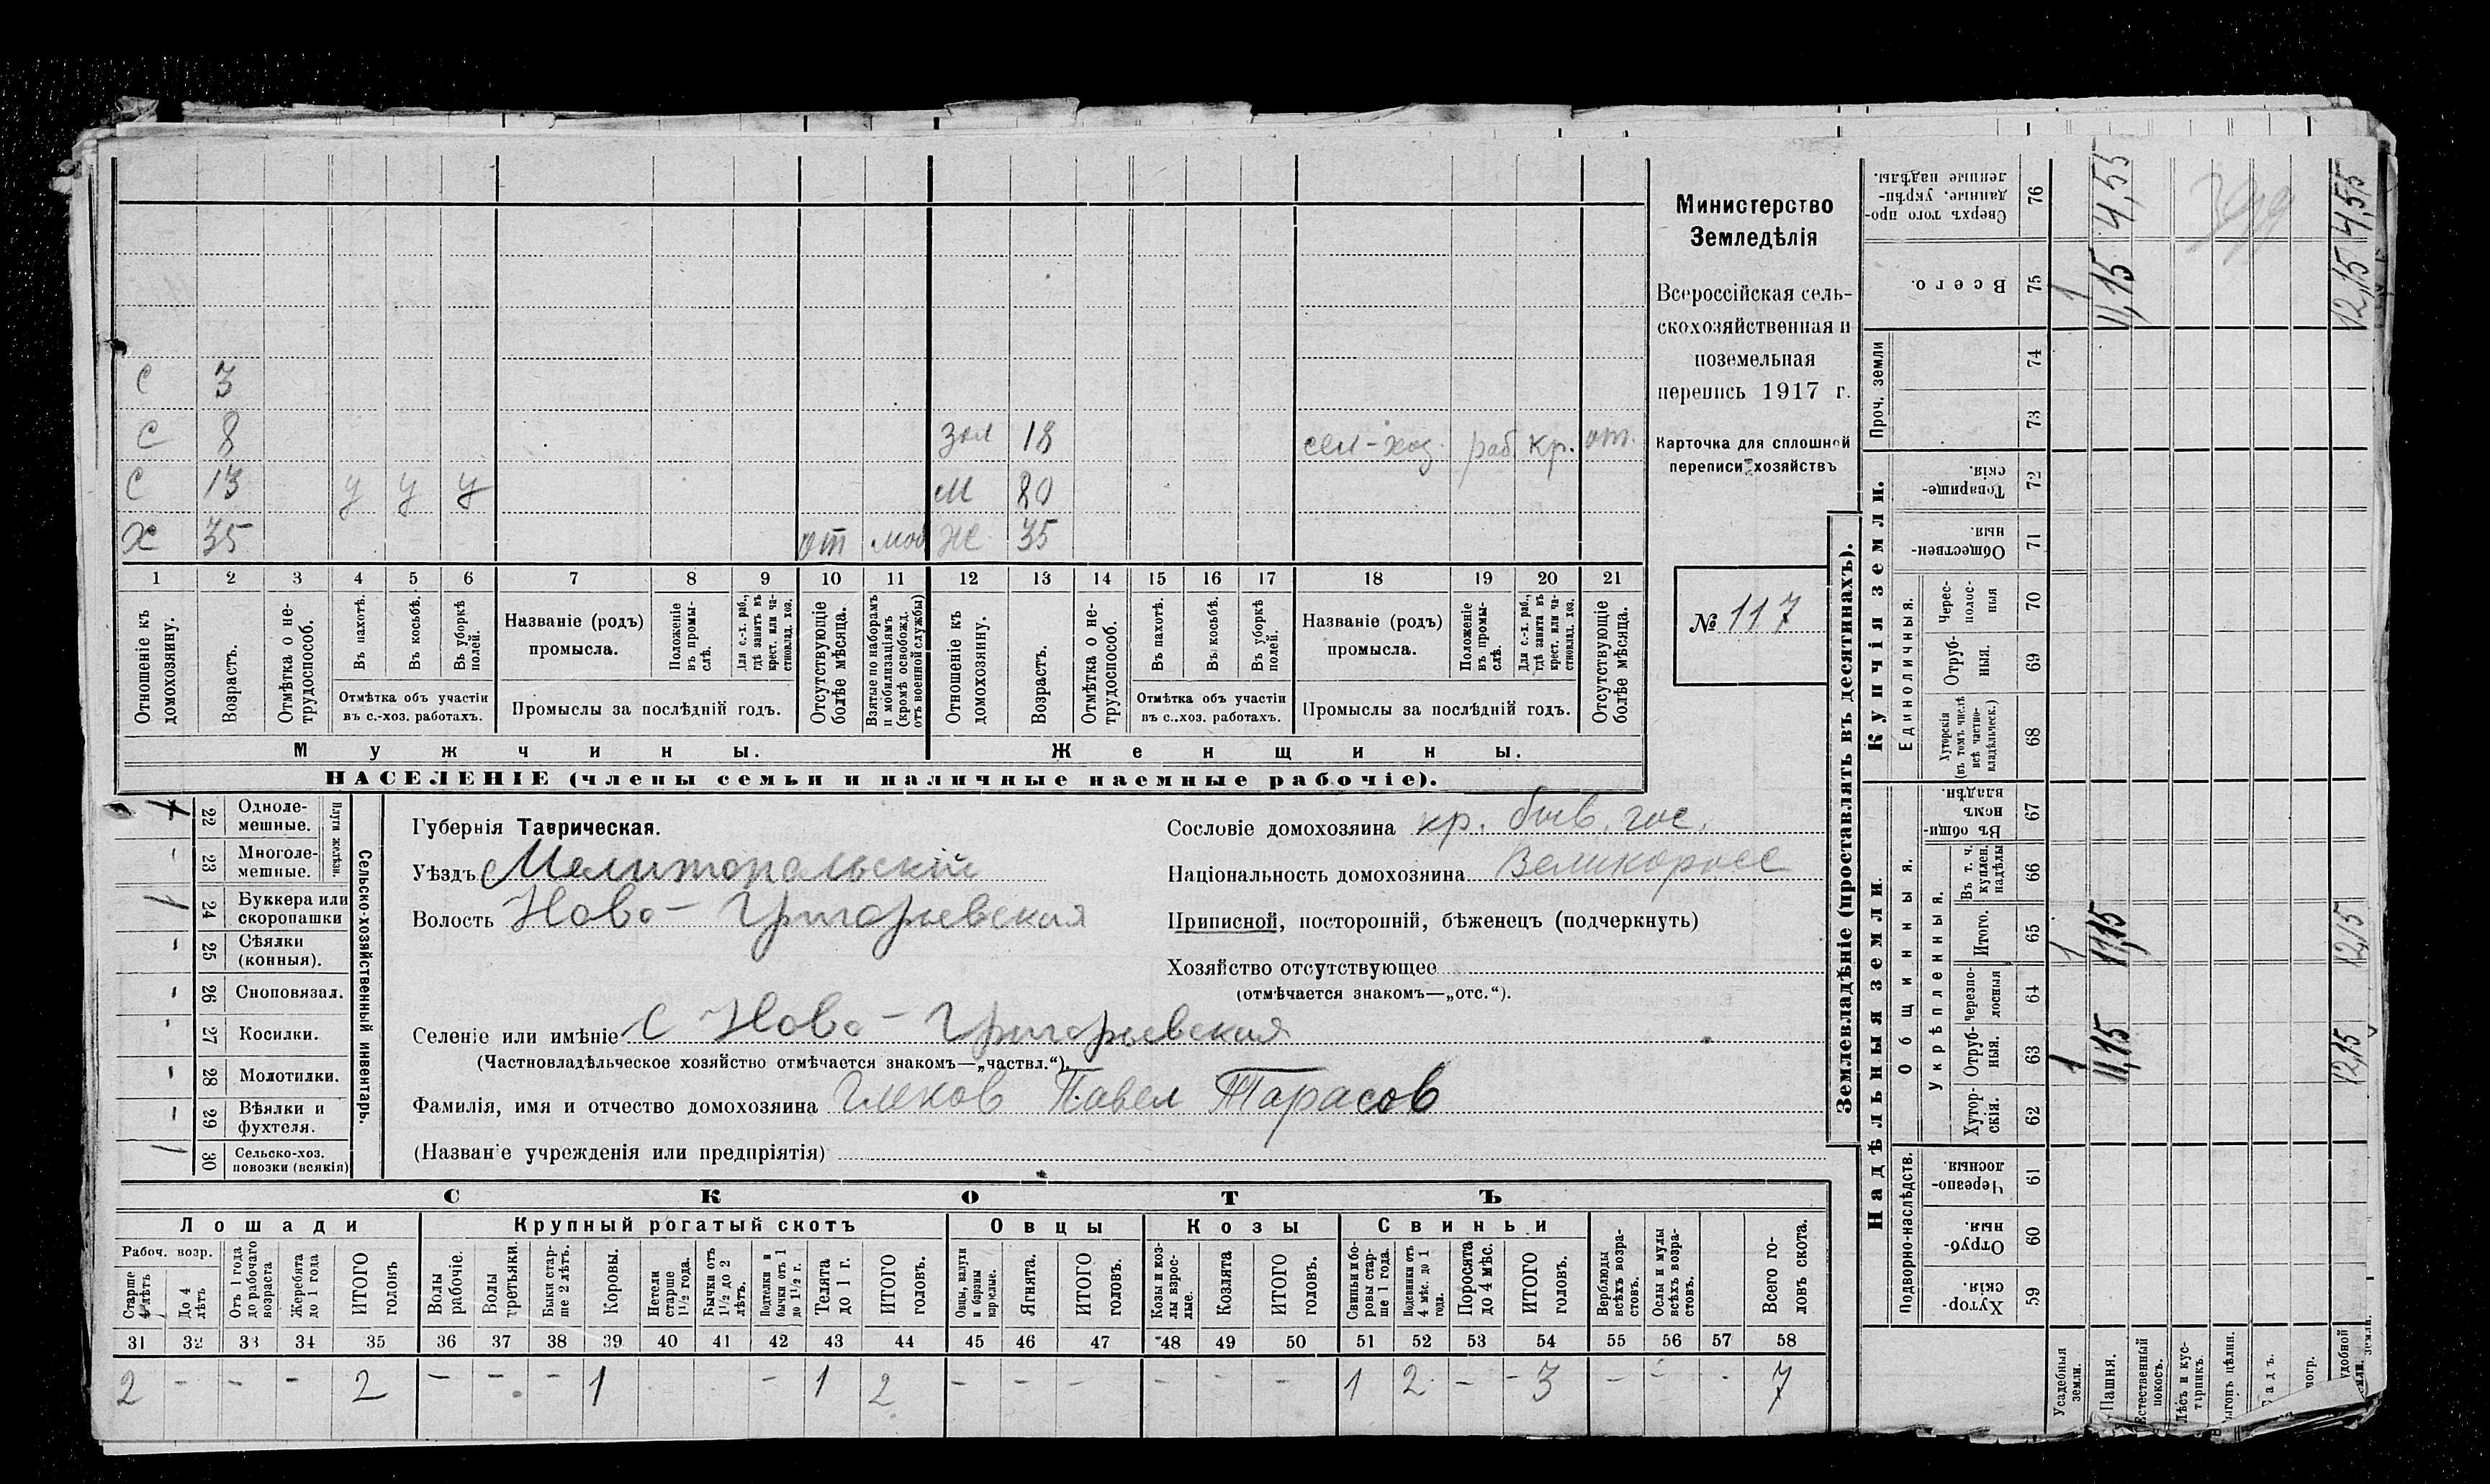 Министерство
Земледѣлія
Всероссійская сель-
скохозяйственная и
поземельная
перепись 1917 г.
Карточка для сплошной
переписи хозяйствъ
№ 117
С 3
С 8 зол 18 сел-хоз. раб кр. от.
С 13 у у у М 80
Х 35 от моб Ж 35
1 2 3 4 5 6 7 8 9 10 11 12 13 14 15 16 17 18 19 20 21
Отношеніе къ домохозяину.
Возрастъ.
Отмѣтка о не-трудоспособ.
Въ пахотѣ.
Въ косьбѣ.
Въ уборкѣ полей.
Отмѣтка объ участіи
въ с.-хоз. работахъ.
Названіе (родъ)
промысла.
Положеніе въ промы-слѣ.
Для с.-х. раб., гдѣ занятъ въ крест. или ча-стновлад. хоз.
Промыслы за послѣдній годъ.
Отсутствующіе болѣе мѣсяца.
Взятые по наборамъ и мобилизаціямъ (кромѣ освобожд. отъ военной службы)
Отношеніе къ домохозяину.
Возрастъ.
Отмѣтка о не-трудоспособ.
Въ пахотѣ.
Въ косьбѣ.
Въ уборкѣ полей.
Отмѣтка объ участіи
въ с.-хоз. работахъ.
Названіе (родъ)
промысла.
Положеніе въ промы-слѣ.
Для с.-х. раб., гдѣ занята въ крест. или ча-стновлад. хоз.
Промыслы за послѣдній годъ.
Отсутствующіе болѣе мѣсяца.
Мужчины.
Женщины.
НАСЕЛЕНІЕ (члены семьи и наличные наемные рабочіе).
Сельско-хозяйственный инвентарь.
Плуги желѣзн.
22 Одноле-мешные.
23 Многоле-мешные.
24 Буккера или скоропашки
25 Сѣялки (конныя).
26 Сноповязал.
27 Косилки.
28 Молотилки.
29 Вѣялки и фухтеля.
30 Сельско-хоз. повозки (всякія)
Губернія Таврическая.
Уѣздъ Мелитопальскій
Волость Ново-Григорьевская
Селеніе или имѣніе С Ново-Григорьевская
(Частновладѣльческое хозяйство отмѣчается знакомъ—„частвл.“).
Фамилія, имя и отчество домохозяина Павел Тарасов
(Названіе учрежденія или предпріятія)
Сословіе домохозяина кр. быв. гос.
Національность домохозяина Великоросс
Приписной, посторонній, бѣженецъ (подчеркнуть)
Хозяйство отсутствующее
(отмѣчается знакомъ—„отс.“).
СКОТЪ
Лошади
Крупный рогатый скотъ
Овцы
Козы
Свиньи
Рабоч. возр.
Старше 4 лѣтъ
До 4 лѣтъ
Отъ 1 года до рабочаго возраста
Жеребята до 1 года
ИТОГО головъ
Волы рабочіе.
Волы третьяки.
Быки стар-ше 2 лѣтъ.
Коровы.
Нетели старше 1½ года.
Бычки отъ 1½ до 2 лѣтъ.
Подтелки и бычки отъ 1 до 1½ г.
Телята до 1 г.
ИТОГО головъ.
Овцы, валухи и бараны взрослые.
Ягнята.
ИТОГО головъ.
Козы и коз-лы взрос-лые.
Козлята
ИТОГО головъ.
Свиньи бо-ровы стар-ше 1 года.
Подсвинки отъ 4 мѣс. до 1 года.
Поросята до 4 мѣс.
ИТОГО головъ.
Верблюды всѣхъ возра-стовъ.
Ослы и мулы всѣхъ возра-стовъ.
Всего го-ловъ скота.
31 32 33 34 35 36 37 38 39 40 41 42 43 44 45 46 47 48 49 50 51 52 53 54 55 56 57 58
2 - - - 2 - - - 1 - 1 2 - - - - - - 1 2 - - 3 - - - 7
Землевладѣніе (проставлять въ десятинахъ).
Надѣльныя земли
Купчія земли.
Проч. земли
Подворно-наслѣдств.
Общинныя.
Укрѣпленныя.
Единоличныя.
59 Хутор-скія.
60 Отруб-ныя.
61 Черезпо-лосныя.
62 Хутор-скія.
63 Отруб-ныя.
64 Черезпо-лосныя
65 Итого.
66 Въ т. ч. куплен. надѣлы
67 Въ общи-номъ владѣн.
68 Хуторскія (въ томъ числѣ всѣ частно-владѣльческ.)
69 Отруб-ныя.
70 Черес-полос-ныя
71 Обществен-ныя
72 Товарище-скія.
73
74
75 Всего.
76 Сверхъ того про-данные, укрѣп-ленные надѣлы.
Усадебныя земли.
Пашня.
Естественный покосъ.
Лѣсъ и кус-тарникъ.
1 1 1
11,15 11,15 11,15 4,55
12,15 12,15 12,15 4,55